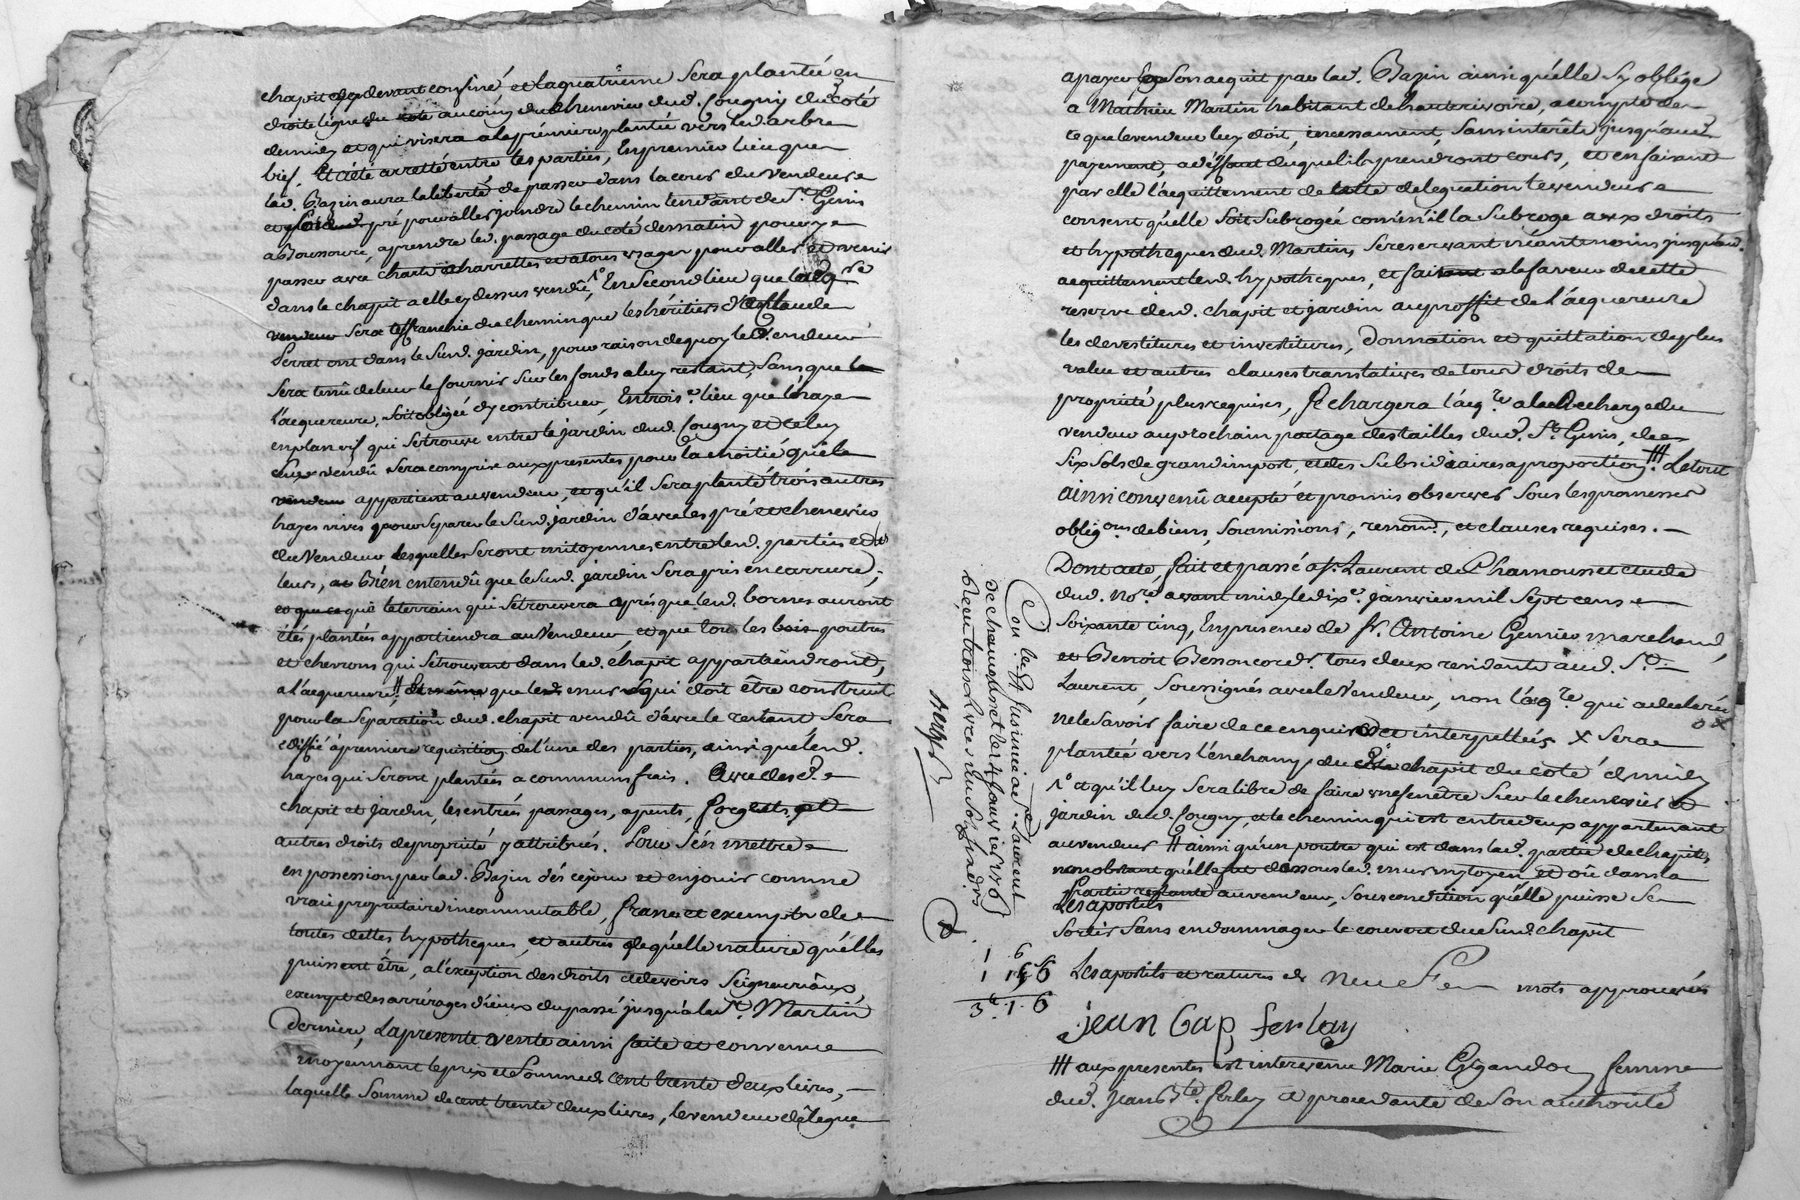 chapit cy devant confiné, et la quatrieme sera plantée en
droite ligne du au coing du chenevier dud. Cougny du coté
de midy et qui visera a la premiere plantée vers led. arbre
bief. Et a été arretté entre les parties, En premier lieu que
lad. Bazin aura la liberté de passer dans la cour du vendeur
et pré pour aller joindre le chemin tendant de St. Genis
a Boussoure, a prendre led. passage du coté de matin pour y
passer avec chars charrettes et a tous usages pour aller et venir
dans le chapit a elle cy dessus vendû, En Second lieu que lacq.re
sera affranchie du chemin que les héritiers d'
Serret ont dans le susd. jardin, pour raison de quoy le vendeur
sera tenû de leur le fournir sur les fonds a luy restant, sans que
l'acquereure, soit obligée d'y contribuer, En trois.e lieu que la haye
en plan vif qui se trouve entre le jardin dud. Cougny et celuy
sus vendû sera comprise aux presentes pour la moitié qu'elle
appartient au vendeur, et qu'il sera planté trois autres
hayes vives pour separer le susd. jardin d'avec les pré et chenevier
du vendeur lesquelles seront mitoyennes entre led. parties et les
leurs, bien entendû que le susd. jardin sera pris en carrure,
que le terrain qui se trouvera après que led. bornes auront
étés plantés appartiendra au vendeur, et que tous les bois poutres
et chevrons qui se trouvent dans led. chapit appartiendront,
a l'acquereure, que led. mur qui doit être construit
pour la separation dud. chapit vendû d'avec le restant sera
édiffié a premiere requisition de l'une des parties, ainsi que lesd.
hayes qui seront plantées a communs frais. Avec desd.
chapit et jardin, les entrées passages, apents, forgets, et
autres droits de proprieté y attribués. Pour s'en mettre
en possession par lad. Bazin dés ce jour et en jouir comme
vrai proprietaire incommutable, franc et exempts de
toutes dettes hypotheques, et autres de quelle nature qu'elles
puissent être, a l'exception des droits et devoirs Seigneuriaux
exempt des arrérages d'iceux du passé jusqu'a la St. Martin
derniere, La presente vente ainsi faite et convenue
moyennant le prix et somme de cent trente deux livres,
laquelle somme de cent trente deux livres, le vendeur délegue
a payer a son acquit par lad. Bazin ainsi qu'elle s'y oblige
a Mathieu Martin habitant de hauterivoire, a compte de
ce que le vendeur luy doit, incessament, sans interêts jusqu'au
payement, a deffaut duquel ils prendront cours, et en faisant
par elle l'acquittement de cette delegation le vendeur
consent qu'elle soit subrogée comm'il la subroge aux droits
et hypotheques dud. Martin, se reservant néantmoins jusqu'aud.
acquittement lesd. hypotheques, et faisant a la faveur de cette
reserve desd. chapit et jardin au proffit de l'acquereure
les devestitures et investitures, donnation et quittation de plus
value et autres clauses translatives de tous droits de
proprieté plus requises, Se chargera l'acq.re a la decharge du
vendeur au prochain partage des tailles dud. St. Genis, de
six sols de grand impost, et des subsidiaires a proportion. Le tout
ainsi convenû accepté et promis observer sous les promesses
oblig.ons de biens, soumissions, renon.ons, et clauses requises.
Dont acte, fait et passé a St. Laurent de Chamousset etude
dud. no.re avant midy le dix.e janvier mil sept cens
soixante cinq, En presence de Sr. Antoine Genier marchand,
et Benoit Besson cord.er tous deux residants aud. St.
Laurent, soussignés avec le vendeur, non l'acq.re qui a declaré
ne le savoir faire de ce enquis et interpellés X sera
plantée vers l'enchamp du chapit du coté de midy
et qu'il luy sera libre de faire une fenêtre sur le chenevier
jardin dud. Cougny, et le chemin qui est entre deux appartenant
au vendeur ainsi qu'un poutre qui est dans lad. partie de chapit
nonobstant qu'elle fut dessous led. mur mitoyen et où dans la
partie restante au vendeur, sous condition qu'elle puisse se
Les apostils
sortir sans endommager le couvert du susd. chapit
Les apostils et ratures de neuf mots approuvés
jean Bap ferlay
aux presentes est intervenue Marie Gigandon femme
dud. Jean B.te ferley a procedante de son authorité
Con.lé et insinué a St. Laurent
de chamousset le 14 janvier 1765
Reçu trois livres un sol six d.rs
1 6
3.1.6